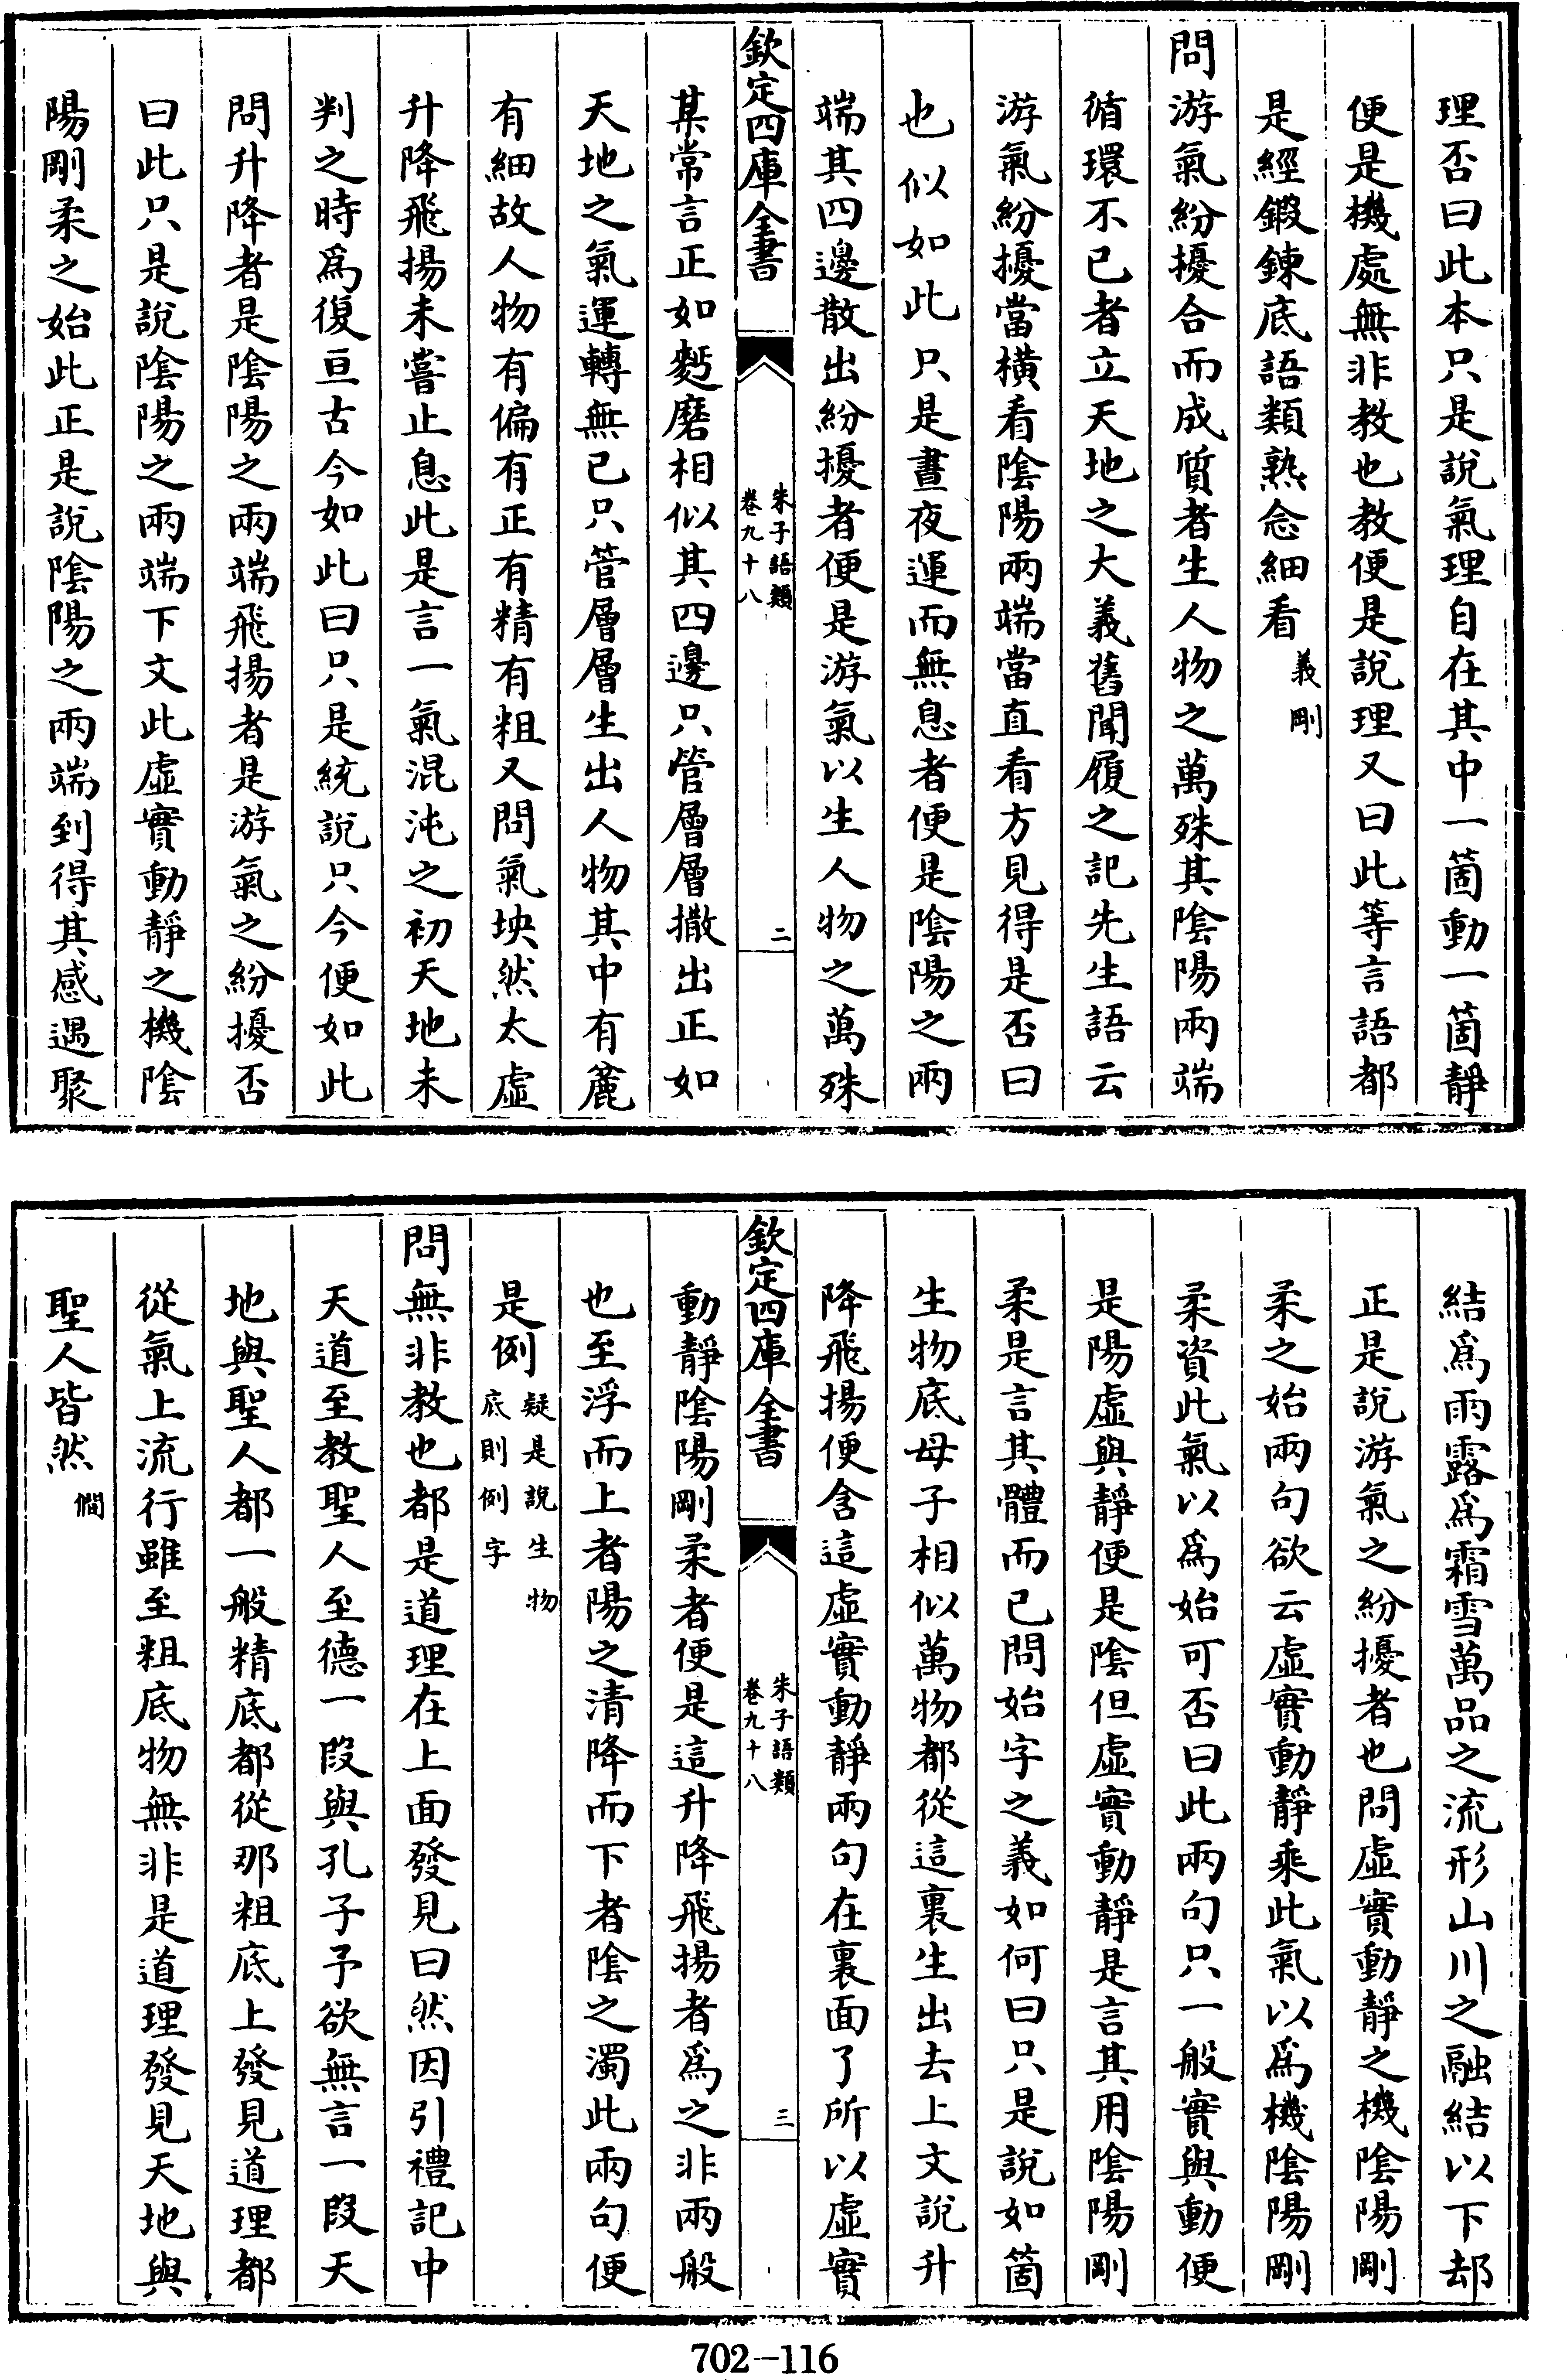 理否曰此本只是說氣理自在其中一箇動一箇靜
便是機處無非教也教便是說理又曰此等言語都
是經鍛鍊底語類熟念細看義剛
問游氣紛擾合而成質者生人物之萬殊其陰陽兩端
循環不已者立天地之大義舊聞履之記先生語云
游氣紛擾當橫看陰陽兩端當直看方見得是否曰
也似如此只是晝夜運而無息者便是陰陽之兩
端其四邊散出紛擾者便是游氣以生人物之萬殊
欽定四庫全書
朱子語類
卷九十八
二
某常言正如麫磨相似其四邊只管層層撒出正如
天地之氣運轉無已只管層層生出人物其中有麄
有細故人物有偏有正有精有粗又問氣坱然太虛
升降飛揚未嘗止息此是言一氣混沌之初天地未
判之時爲復亘古今如此曰只是統說只今便如此
問升降者是陰陽之兩端飛揚者是游氣之紛擾否
曰此只是說陰陽之兩端下文此虛實動靜之機陰
陽剛柔之始此正是說陰陽之兩端到得其感遇聚
結爲雨露爲霜雪萬品之流形山川之融結以下却
正是說游氣之紛擾者也問虛實動靜之機陰陽剛
柔之始兩句欲云虛實動靜乘此氣以爲機陰陽剛
柔資此氣以爲始可否曰此兩句只一般實與動便
是陽虛與靜便是陰但虛實動靜是言其用陰陽剛
柔是言其體而已問始字之義如何曰只是說如箇
生物底母子相似萬物都從這裏生出去上文說升
降飛揚便含這虛實動靜兩句在裏面了所以虛實
欽定四庫全書
朱子語類
卷九十八
三
動靜陰陽剛柔者便是這升降飛揚者爲之非兩般
也至浮而上者陽之清降而下者陰之濁此兩句便
是例疑是說生物
底則例字
問無非教也都是道理在上面發見曰然因引禮記中
天道至教聖人至德一段與孔子予欲無言一段天
地與聖人都一般精底都從那粗底上發見道理都
從氣上流行雖至粗底物無非是道理發見天地與
聖人皆然僩
702-116